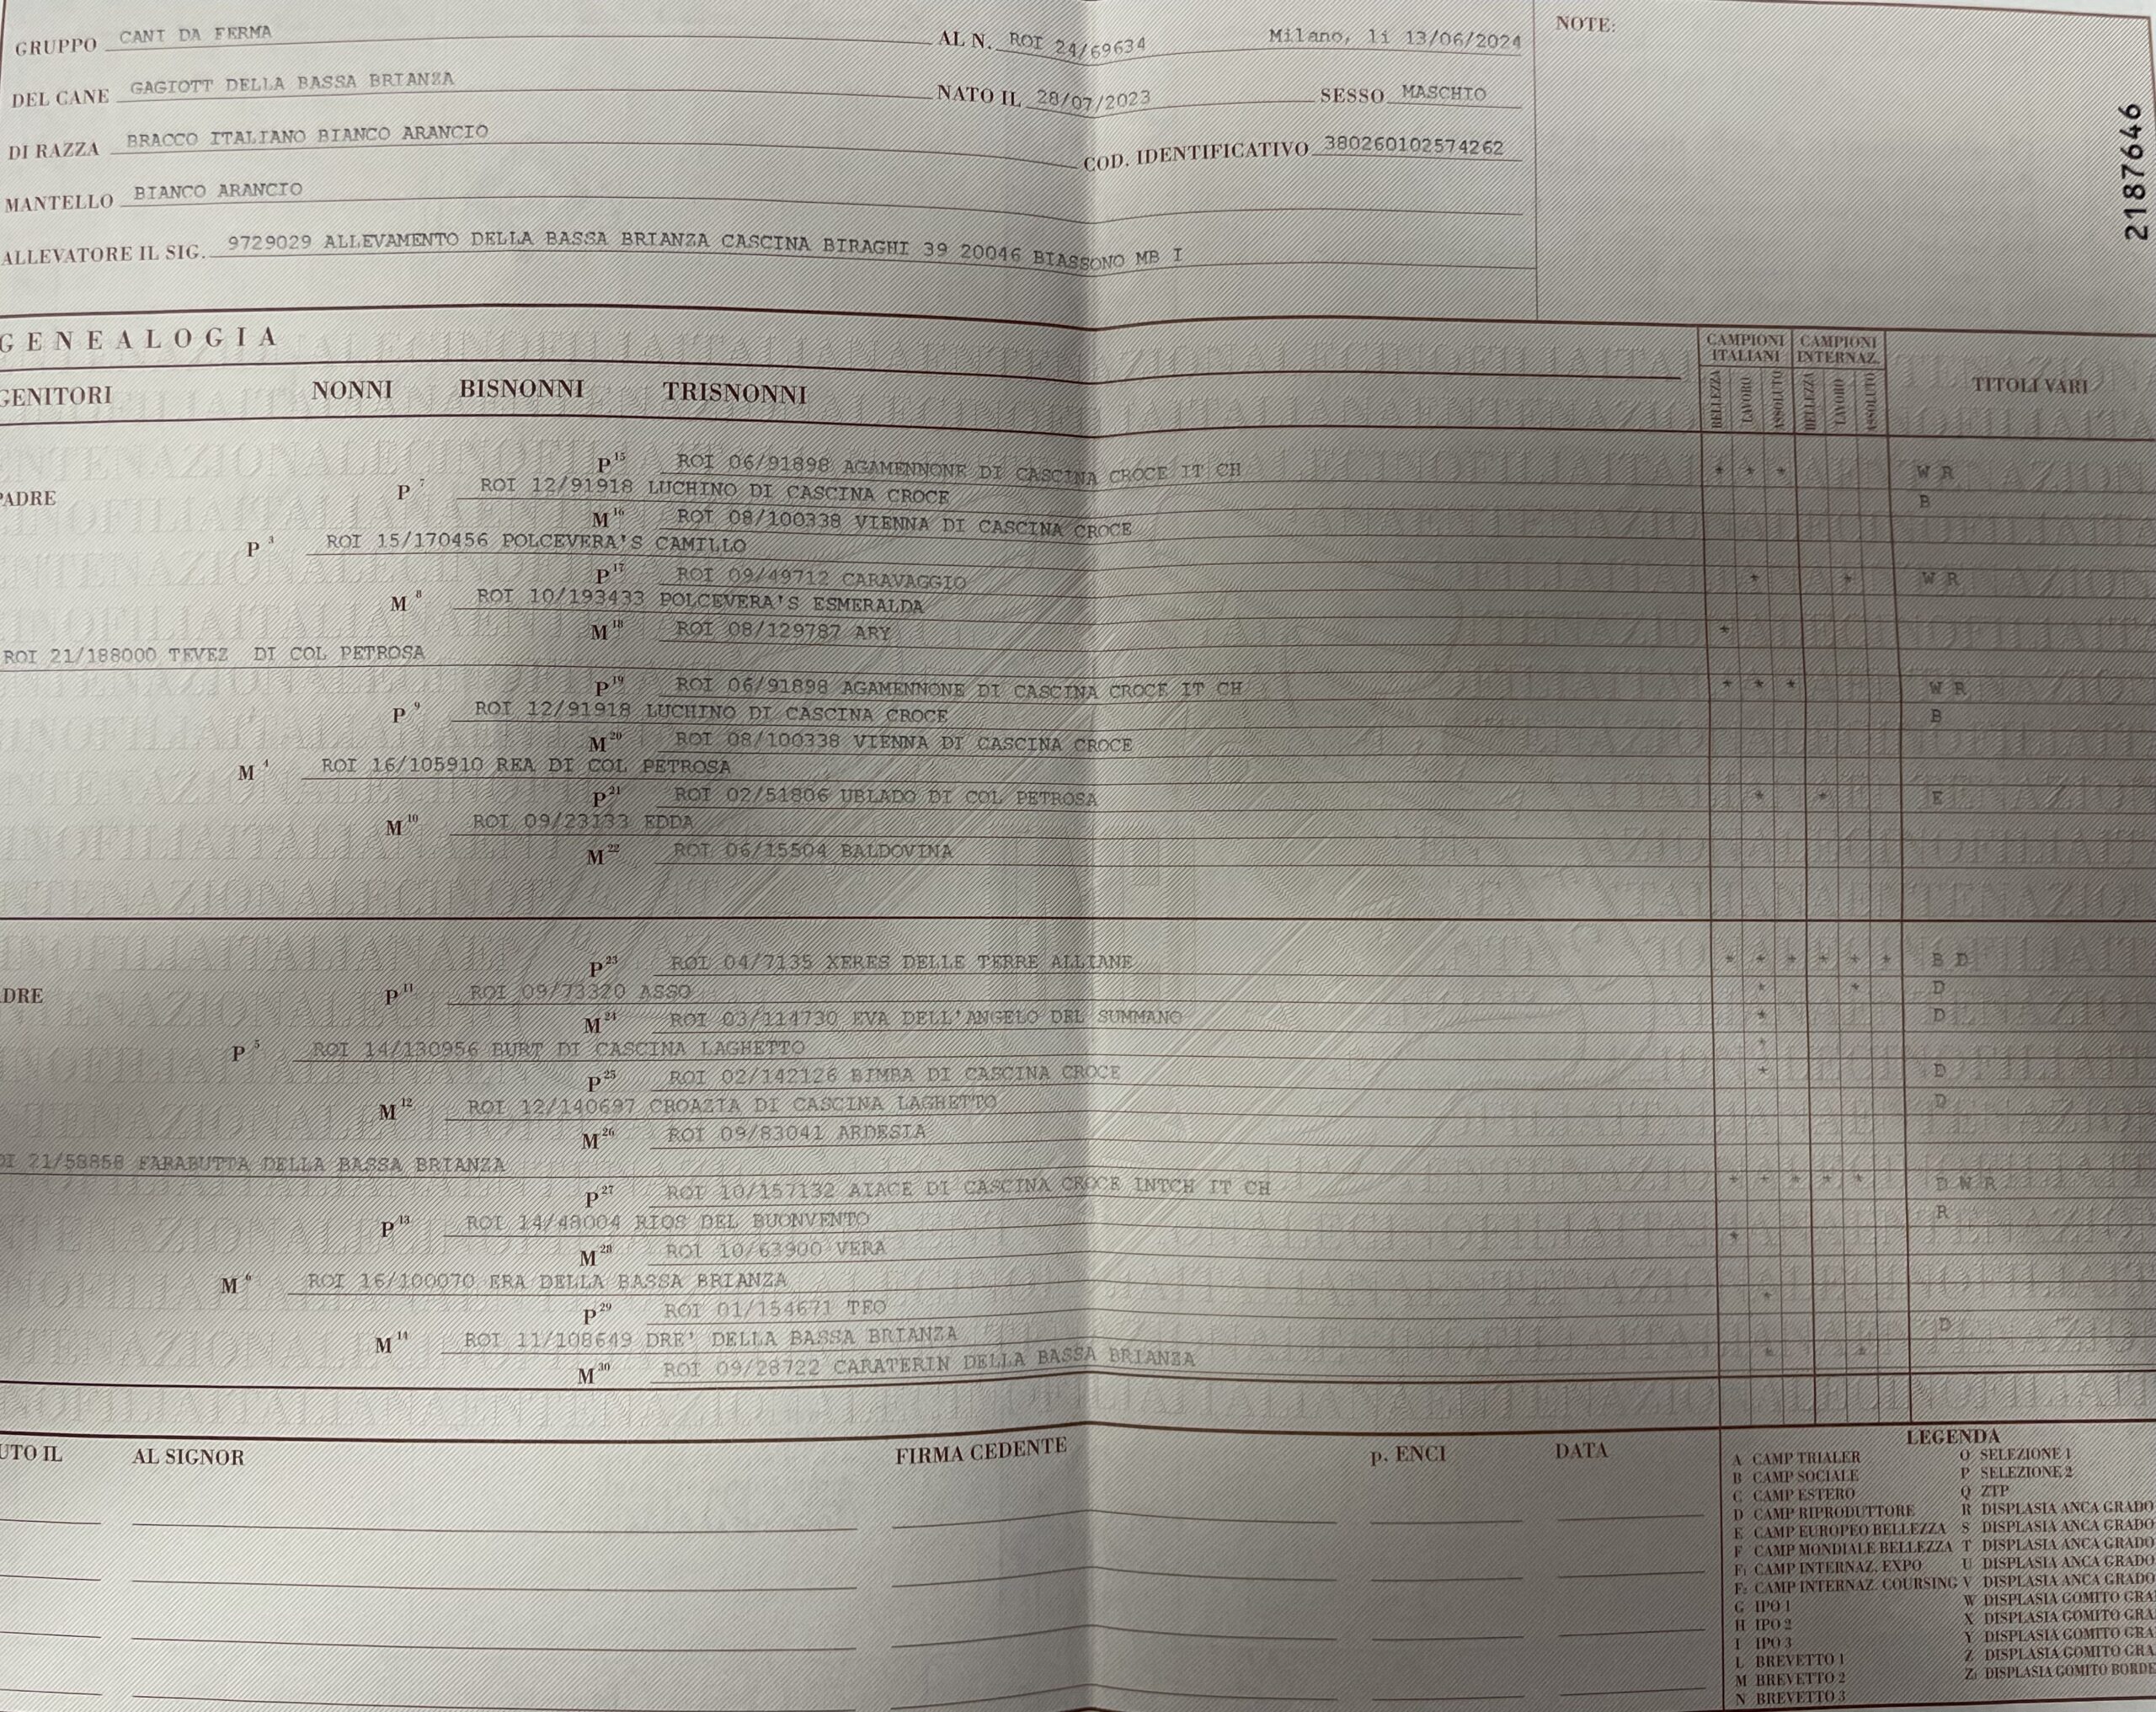 GRUPPO CANI DA FERMA AL N. ROI 24/69634 Milano, li 13/06/2024 NOTE:
DEL CANE GAGIOTT DELLA BASSA BRIANZA NATO IL 28/07/2023 SESSO MASCHIO
DI RAZZA BRACCO ITALIANO BIANCO ARANCIO COD. IDENTIFICATIVO 380260102574262
MANTELLO BIANCO ARANCIO
ALLEVATORE IL SIG. 9729029 ALLEVAMENTO DELLA BASSA BRIANZA CASCINA BIRAGHI 39 20046 BIASSONO MB I
2187646
GENEALOGIA
CAMPIONI ITALIANI CAMPIONI INTERNAZ.
GENITORI NONNI BISNONNI TRISNONNI BELLEZZA LAVORO ASSOLUTO BELLEZZA LAVORO ASSOLUTO TITOLI VARI
P 15 ROI 06/91898 AGAMENNONE DI CASCINA CROCE IT CH * * * W R
PADRE P 7 ROI 12/91918 LUCHINO DI CASCINA CROCE B
M 16 ROI 08/100338 VIENNA DI CASCINA CROCE
P 3 ROI 15/170456 POLCEVERA'S CAMILLO
P 17 ROI 09/49712 CARAVAGGIO * * W R
M 8 ROI 10/193433 POLCEVERA'S ESMERALDA
M 18 ROI 08/129787 ARY *
ROI 21/188000 TEVEZ DI COL PETROSA
P 19 ROI 06/91898 AGAMENNONE DI CASCINA CROCE IT CH * * * W R
P 9 ROI 12/91918 LUCHINO DI CASCINA CROCE B
M 20 ROI 08/100338 VIENNA DI CASCINA CROCE
M 4 ROI 16/105910 REA DI COL PETROSA
P 21 ROI 02/51806 UBLADO DI COL PETROSA * * E
M 10 ROI 09/23133 EDDA
M 22 ROI 06/15504 BALDOVINA
P 23 ROI 04/7135 XERES DELLE TERRE ALLIANE * * * * * * B D
DRE P 11 ROI 09/73320 ASSO * * D
M 24 ROI 03/114730 EVA DELL'ANGELO DEL SUMMANO * D
P 5 ROI 14/130956 BURT DI CASCINA LAGHETTO *
P 25 ROI 02/142126 BIMBA DI CASCINA CROCE * D
M 12 ROI 12/140697 CROAZIA DI CASCINA LAGHETTO D
M 26 ROI 09/83041 ARDESIA
OI 21/58858 FARABUTTA DELLA BASSA BRIANZA
P 27 ROI 10/157132 AIACE DI CASCINA CROCE INTCH IT CH * * * * * D W R
P 13 ROI 14/48004 RIOS DEL BUONVENTO R
M 28 ROI 10/63900 VERA *
M 6 ROI 16/100070 ERA DELLA BASSA BRIANZA
P 29 ROI 01/154671 TEO *
M 14 ROI 11/108649 DRE' DELLA BASSA BRIANZA D
M 30 ROI 09/28722 CARATERIN DELLA BASSA BRIANZA * *
UTO IL AL SIGNOR FIRMA CEDENTE p. ENCI DATA
LEGENDA
A CAMP TRIALER O SELEZIONE 1
B CAMP SOCIALE P SELEZIONE 2
C CAMP ESTERO Q ZTP
D CAMP RIPRODUTTORE R DISPLASIA ANCA GRADO
E CAMP EUROPEO BELLEZZA S DISPLASIA ANCA GRADO
F CAMP MONDIALE BELLEZZA T DISPLASIA ANCA GRADO
F1 CAMP INTERNAZ. EXPO U DISPLASIA ANCA GRADO
F2 CAMP INTERNAZ. COURSING V DISPLASIA ANCA GRADO
G IPO 1 W DISPLASIA GOMITO GRA
H IPO 2 X DISPLASIA GOMITO GRA
I IPO 3 Y DISPLASIA GOMITO GRA
L BREVETTO 1 Z DISPLASIA GOMITO GRA
M BREVETTO 2 Z1 DISPLASIA GOMITO BORDE
N BREVETTO 3